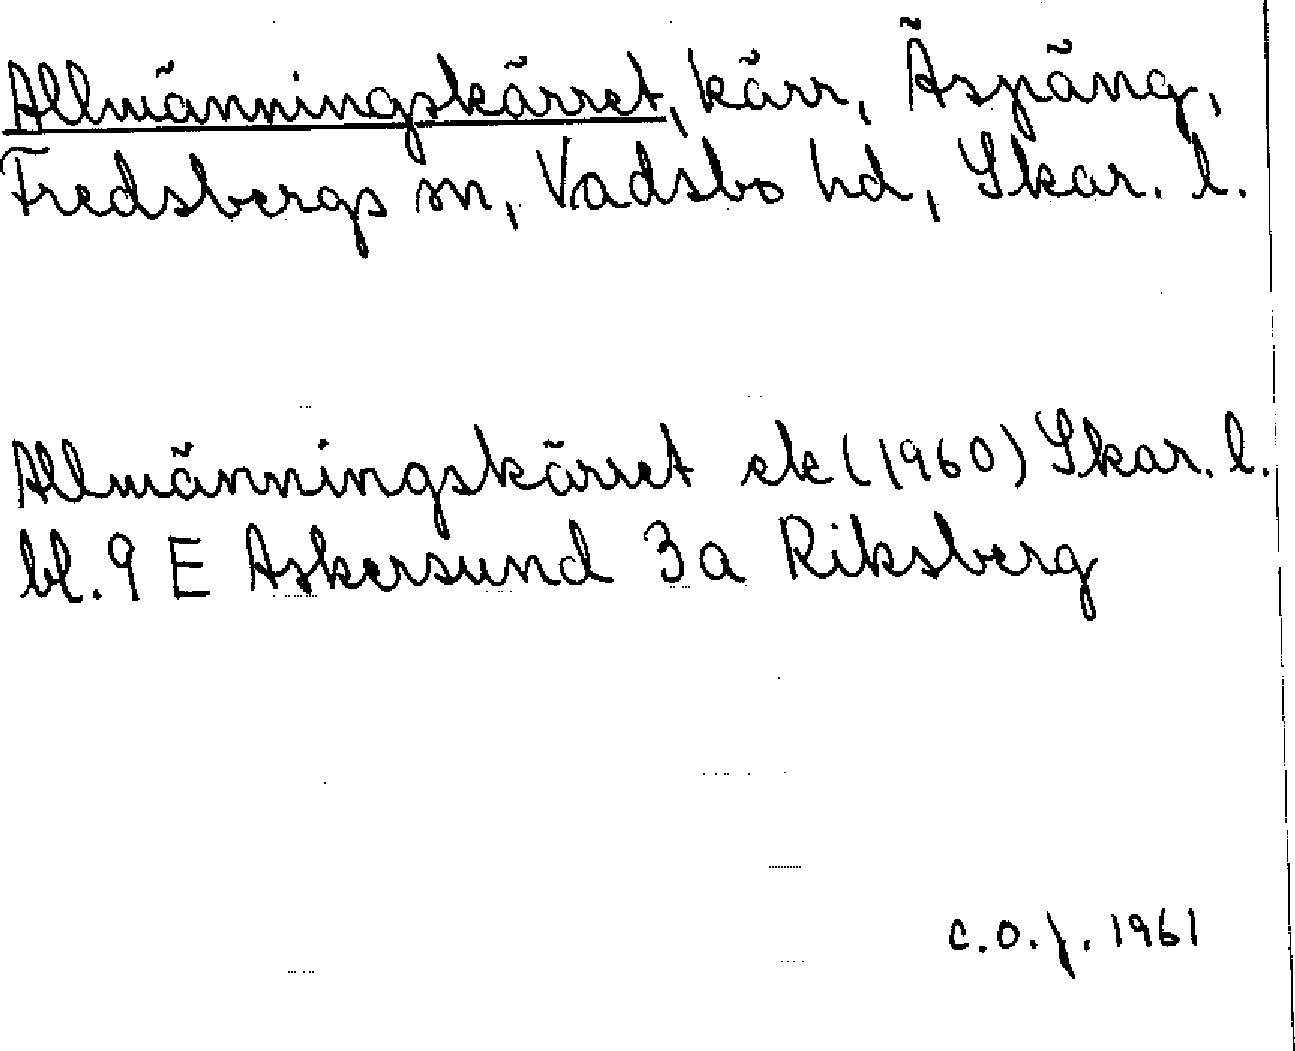 Allmänningskärret, kärr, Äspäng,
Fredsbergs sn, Vadsbo hd, Skar. l.
Allmänningskärret ek (1960) Skar. l.
bl. 9 E Askersund 3a Riksberg
C.O.J. 1961